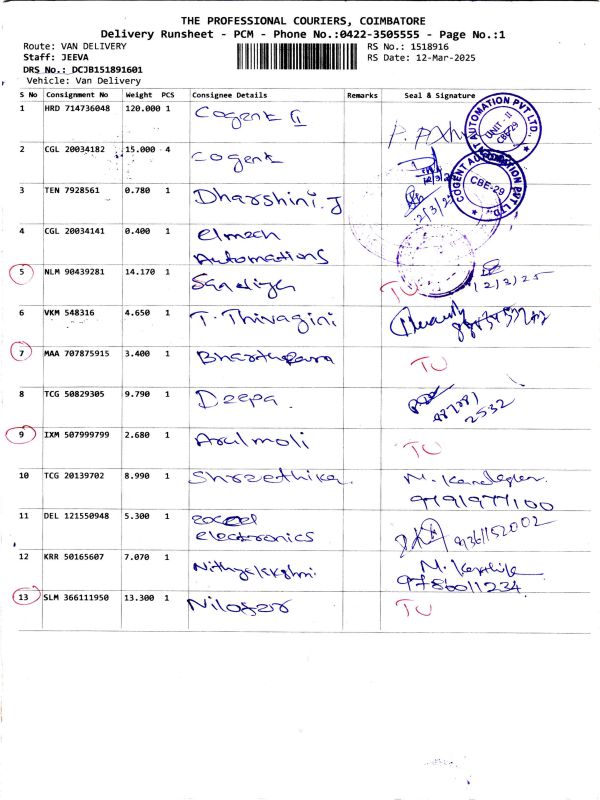 THE PROFESSIONAL COURIERS, COIMBATORE
Delivery Runsheet - PCM - Phone No.:0422-3505555 - Page No.:1
Route: VAN DELIVERY RS No.: 1518916
Staff: JEEVA RS Date: 12-Mar-2025
DRS No.: DCJB151891601
Vehicle: Van Delivery
S No Consignment No Weight PCS Consignee Details Remarks Seal & Signature
1 HRD 714736048 120.000 1 Cogent II
COGENT AUTOMATION PVT LTD. UNIT - II CBE-29
2 CGL 20034182 15.000 4 Cogent
COGENT AUTOMATION PVT LTD CBE-29
3 TEN 7928561 0.780 1 Dharshini.J 12/3/25
4 CGL 20034141 0.400 1 Elmech
Automations
5 NLM 90439281 14.170 1 Sandiya TU 12/3/25
6 VKM 548316 4.650 1 T. Thivagini
7 MAA 707875915 3.400 1 TU
8 TCG 50829305 9.790 1 Deepa. 2532
9 IXM 507999799 2.680 1 Arulmoli TU
10 TCG 20139702 8.990 1 Shreethika.
9191977100
11 DEL 121550948 5.300 1 Excel
electronics 9361152002
12 KRR 50165607 7.070 1 Nithyalakshmi. M. Karthik
9786011234
13 SLM 366111950 13.300 1 Nilofer TU